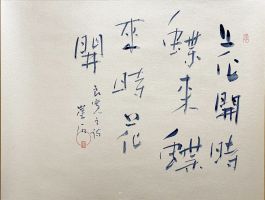 花開時
蝶来蝶
来時花
開
良寛之詩